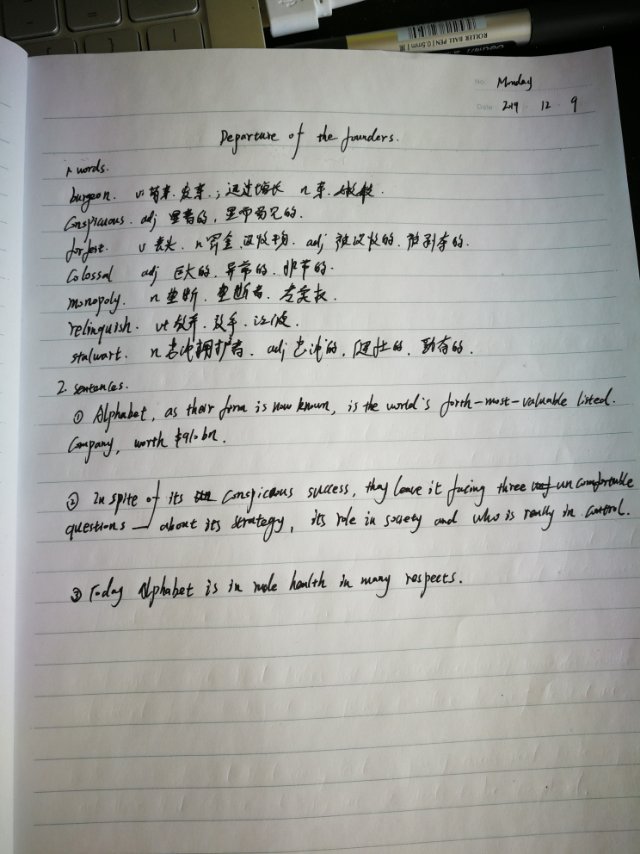 ROLLER BALL PEN | 0.5mm
No. Monday
Date 2019 12 9
Departure of the founders.
1 words.
burgeon. v. 萌芽. 发芽. ; 迅速增长 n 芽.
Conspicuous. adj 显著的, 显而易见的.
forfeit. v 丧失. n 罚金. 没收物. adj 被没收的. 被剥夺的.
Colossal adj 巨大的. 异常的. 非常的.
monopoly. n 垄断. 垄断者. 专卖权.
relinquish. vt 放弃. 放手. 让渡.
stalwart. n 忠实拥护者. adj 忠诚的, 健壮的. 勇有的.
2. sentences.
① Alphabet, as their form is now known, is the world's forth-most-valuable listed.
Company, worth $910 bn.
② In spite of its conspicuous success, they leave it facing three uncomfortable
questions — about its strategy, its role in society and who is really in control.
③ Today Alphabet is in rude health in many respects.